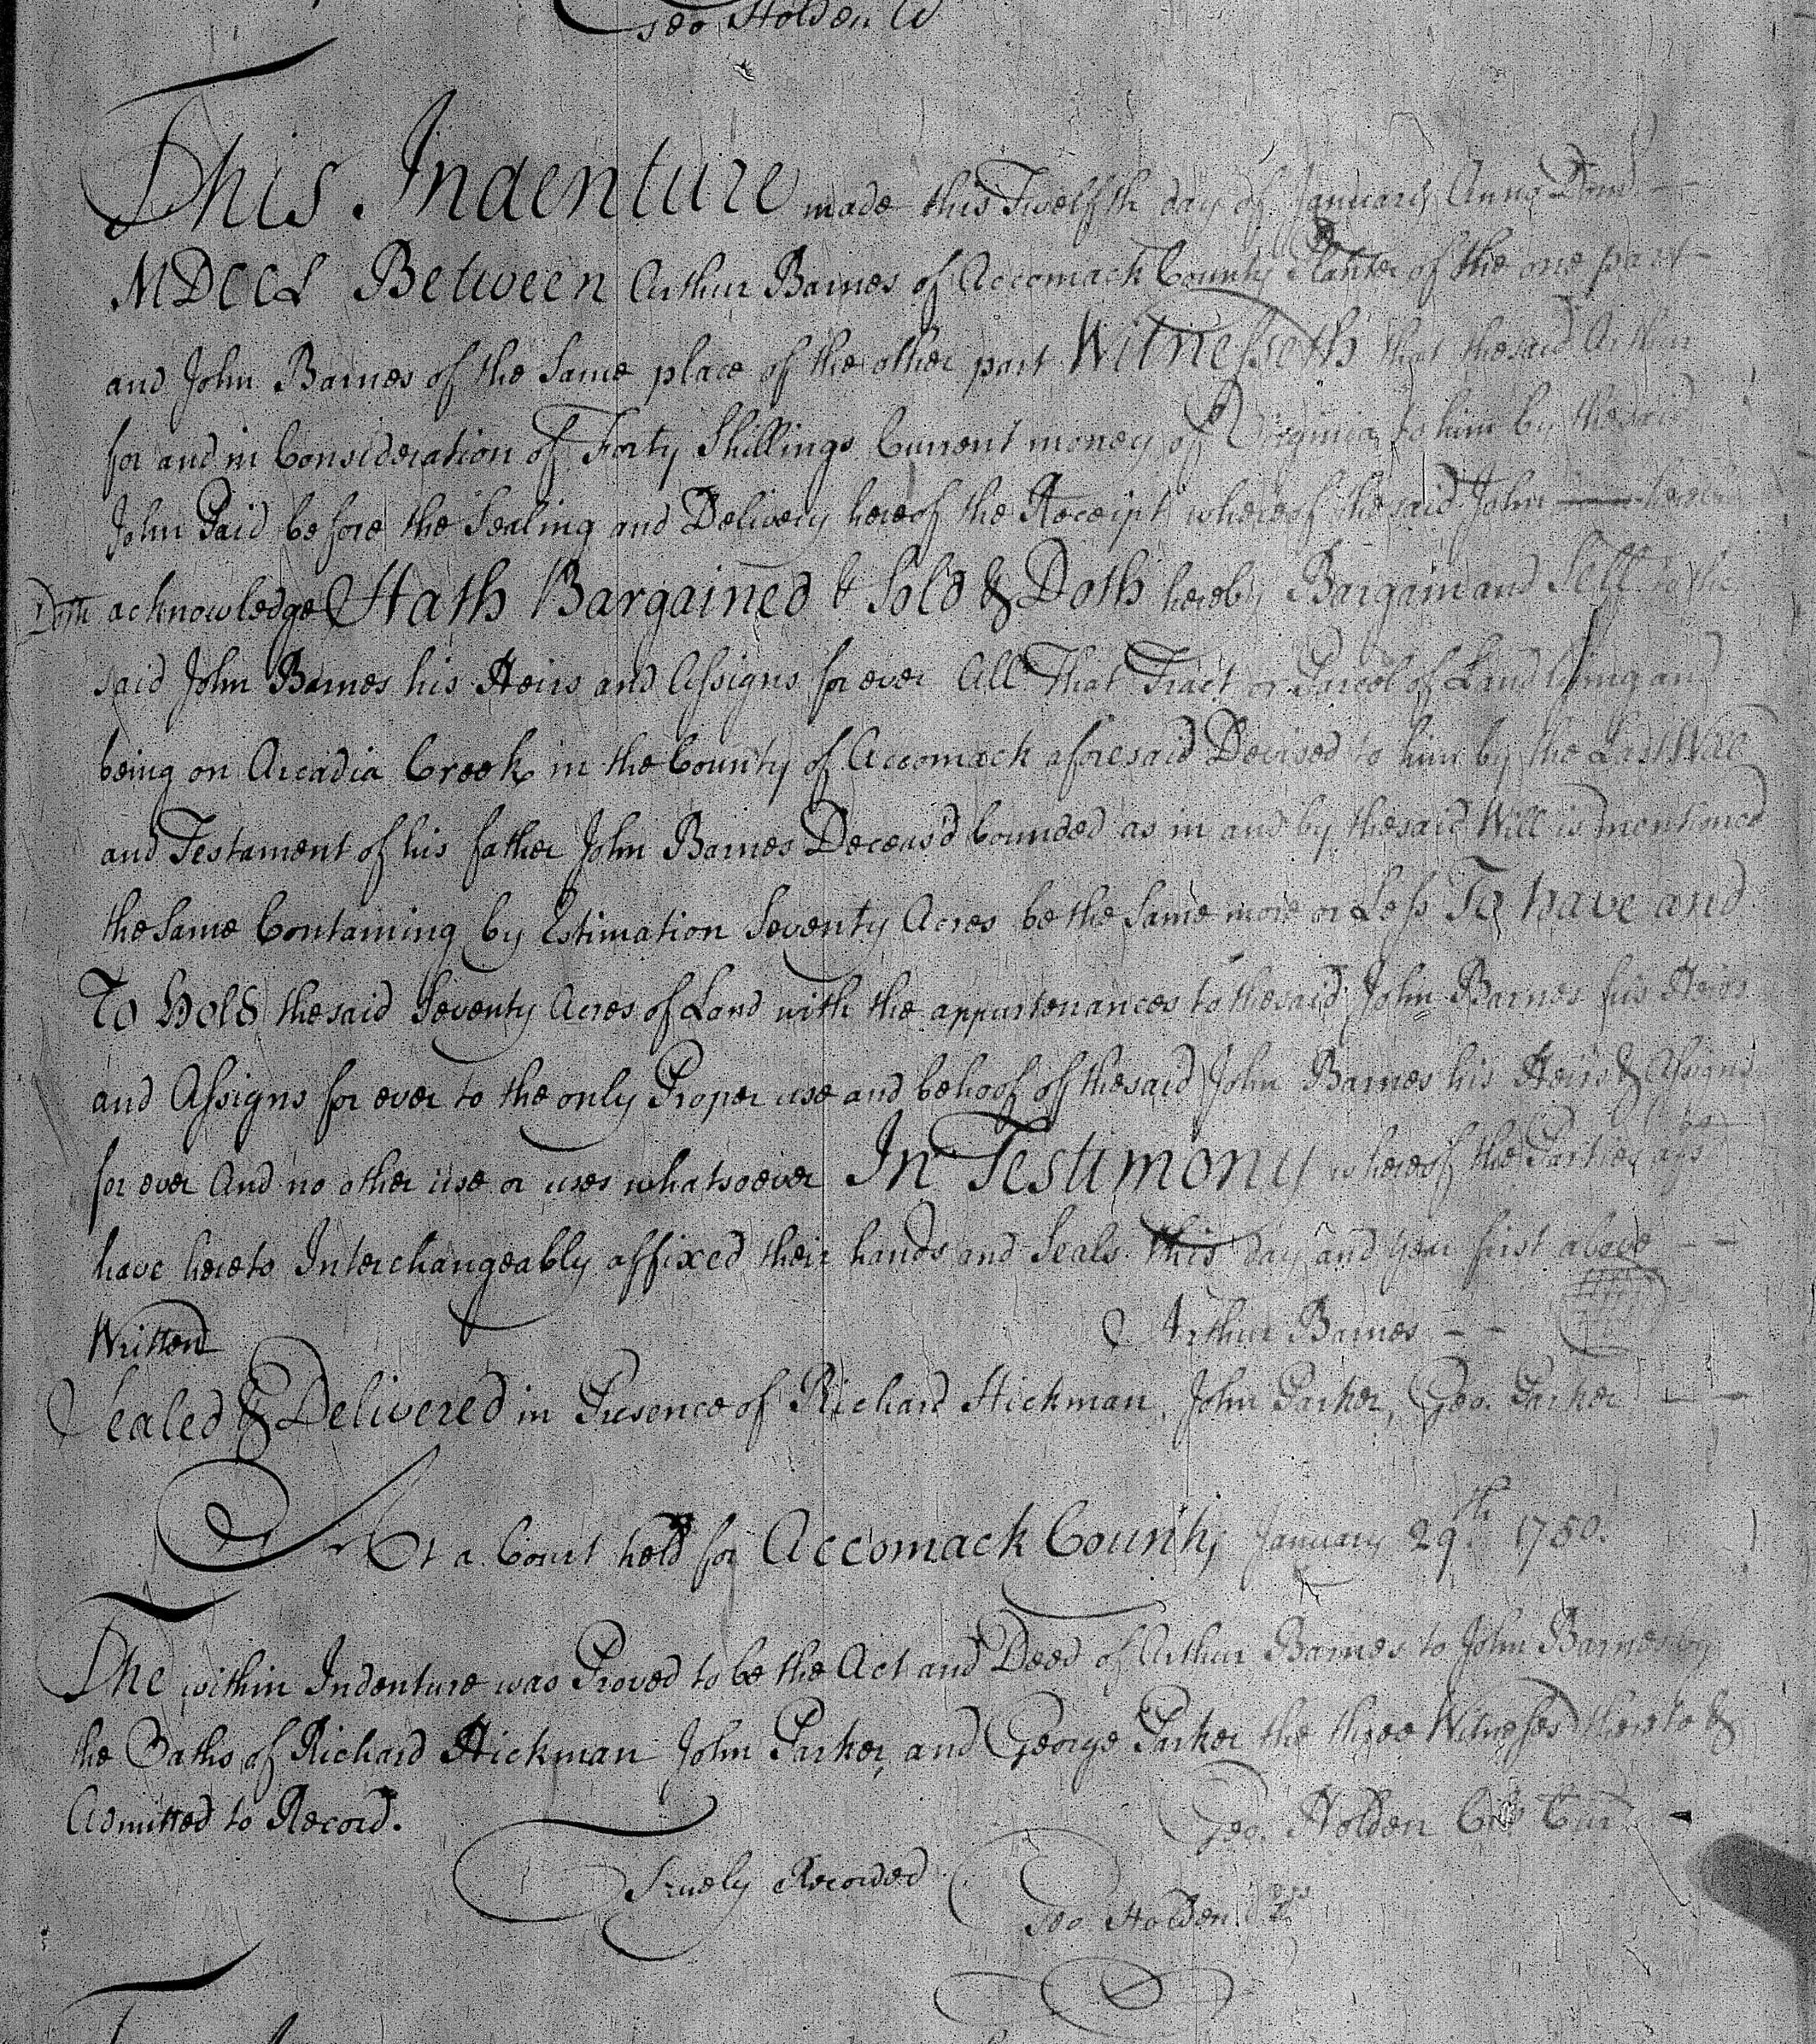 Geo Holden Cl
This Indenture made this Twelfth day of January Anno Dom
MDCCL Between Arthur Barnes of Accomack County Planter of the one part
and John Barnes of the Same place of the other part Witnesseth that the said Arthur
for and in Consideration of Forty Shillings Current money of Virginia to him by the said
John Paid before the Sealing and Delivery hereof the Receipt whereof the said John
Doth acknowledge Hath Bargained & Sold & Doth hereby Bargain and Sell to the
said John Barnes his Heirs and Assigns for ever All That Tract or Parcel of Land lying and
being on Arcadia Creek in the County of Accomack aforesaid Devised to him by the Last Will
and Testament of his father John Barnes Deceas'd bounded as in and by the said Will is mentioned
the Same Containing by Estimation Seventy Acres be the Same more or Less To have and
To Hold the said Seventy Acres of Land with the appurtenances to the said John Barnes his Heirs
and Assigns for ever to the only Proper use and behoof of the said John Barnes his Heirs & Assigns
for ever And no other use or uses whatsoever In Testimony whereof the Parties
have hereto Interchangeably affixed their hands and Seals this day and year first above
Written
Arthur Barnes
Sealed & Delivered in Presence of Richard Hickman, John Parker, Geo. Parker
At a Court held for Accomack County January 29th 1750.
The within Indenture was Proved to be the Act and Deed of Arthur Barnes to John Barnes by
the Oaths of Richard Hickman John Parker, and George Parker the three Witnesses thereto &
Admitted to Record.
Geo. Holden Cl Cur
Truely Recorded
Geo Holden